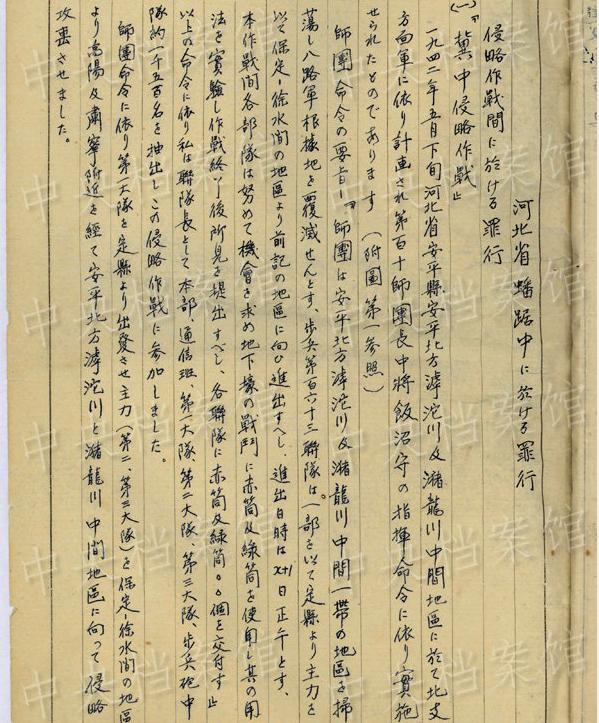 河北省蟠踞中に於ける罪行
侵略作戦間に於ける罪行
(一)『冀中侵略作戦』
一九四二年五月下旬河北省安平縣安平北方滹沱川及瀦龍川中間地區に於て北支
方面軍に依り計画され第百十師團長中將飯沼守の指揮命令に依り實施
せられたものであります（附圖第一参照）
師團命令の要旨『師團は安平北方滹沱川及瀦龍川中間一帶の地區を掃
蕩し八路軍根據地を覆滅せんとす、歩兵第百六十三聯隊は一部を以て定縣より主力を
以て保定、徐水間の地區より前記の地區に向ひ進出すべし、進出日時はx+1日正午とす、
本作戦間各部隊は努めて機會を求め地下壕の戰鬥に赤筒及緑筒を使用し其の用
法を實驗し作戦終了後所見を提出すべし、各聯隊に赤筒及緑筒〇〇個を交付す』
以上の命令に依り私は聯隊長として本部、通信班、第一大隊、第二大隊、第三大隊、歩兵砲中
隊約一千五百名を抽出しこの侵略作戦に参加しました。
師團命令に依り第一大隊を定縣より出發させ主力（第二、第三大隊）を保定、徐水間の地區
より高陽及肅寧附近を經て安平北方滹沱川と瀦龍川中間地區に向って侵略
攻击させました。
中央档案馆